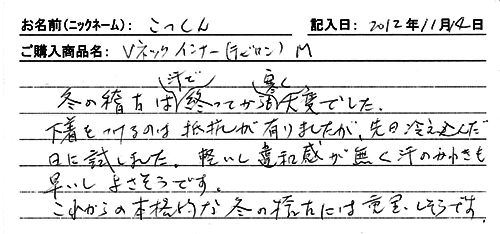 お名前(ニックネーム): こっしん 記入日: 2012年11月14日
ご購入商品名: Vネックインナー(テビロン) M
冬の稽古は汗で終ってから寒く大変でした.
下着をつけるのは抵抗が有りましたが、先日冷え込んだ
日に試しました. 軽いし違和感が無く汗のかわきも
早いし よさそうです.
これからの本格的な冬の稽古には重宝しそうです